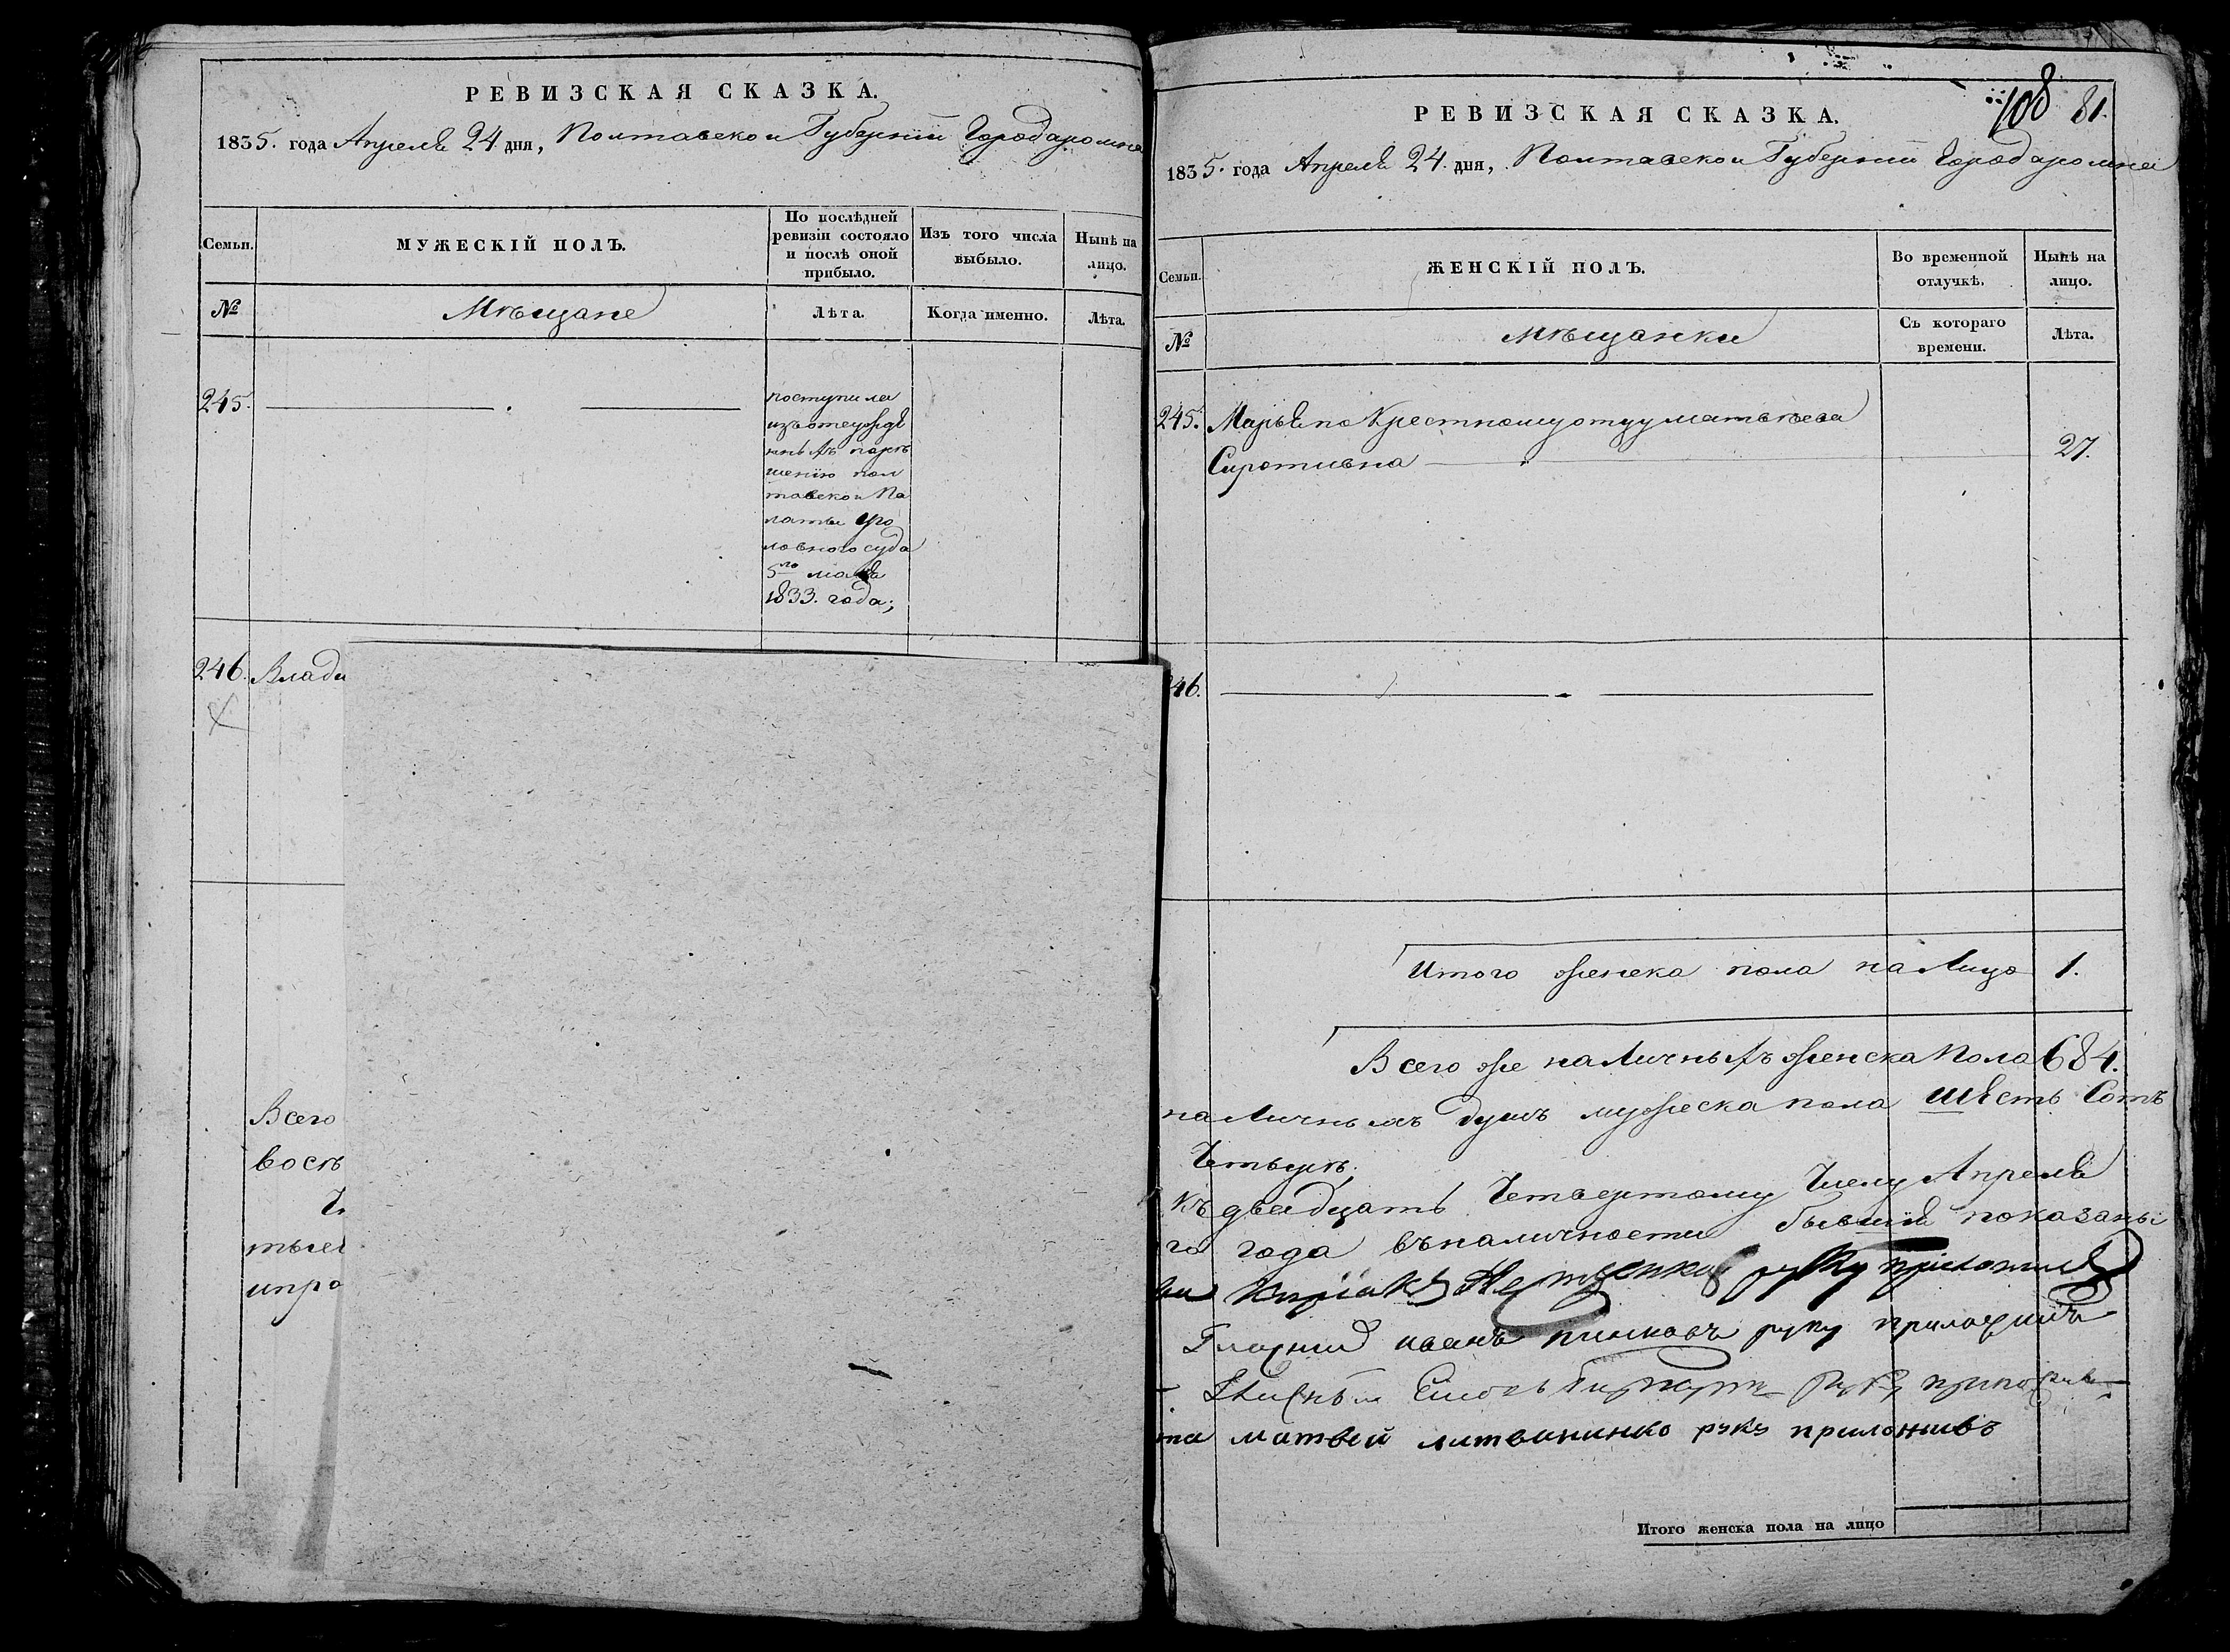 РЕВИЗСКАЯ СКАЗКА.
1835. года Апреля 24 дня, Полтавской Губерніи Города
Семьи.
МУЖЕСКІЙ ПОЛЪ.
По послѣдней ревизіи состояло и послѣ оной прибыло.
Изъ того числа выбыло.
Нынѣ на лицо.
№
Мѣщане
Лѣта.
Когда именно.
Лѣта.
245.
поступила
шенію пол
тавской Па
латы Уго
ловного суда
5го мая
1833. года;
246. Влади
Всего
восѣ
тысе
ипро
РЕВИЗСКАЯ СКАЗКА.
108 81.
1835. года Апреля 24. дня, Полтавской Губерніи Города
Семьи.
ЖЕНСКІЙ ПОЛЪ.
Во временной отлучкѣ.
Нынѣ на лицо.
№
Мѣщанки
Съ котораго времени.
Лѣта.
245. Марья по Крестному отцу матвѣева
Сиротивна 27.
46.
Итого женска пола на Лицо 1.
Всего же на Личныхъ женска Пола 684.
на Личныхъ душъ мужеска пола шесть Сотъ
Четыре.
къ двадцать Четвертому Числу Апреля
го года въ наличности бывшія показаны
руку приложилъ
Гласний иванъ руку приложилъ
Гласный руку приложив
та матвей литвининко руку приложивъ
Итого женска пола на лицо